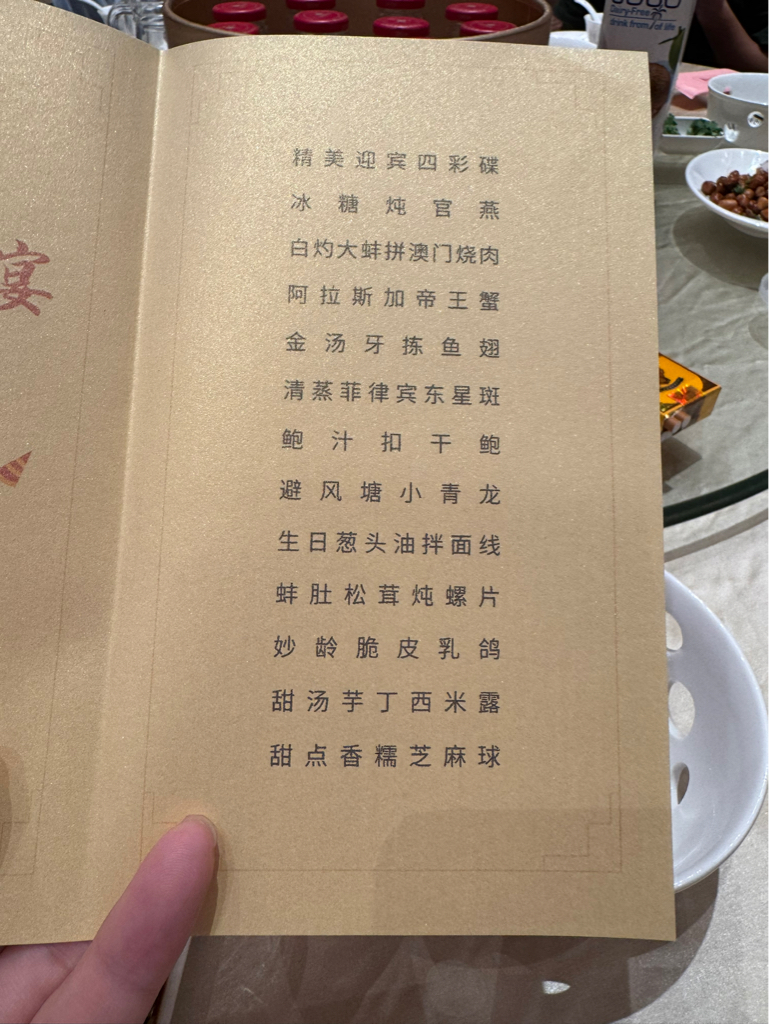 Dairy-Free
drink from / of life
宴
精美迎宾四彩碟
冰糖炖官燕
白灼大蚌拼澳门烧肉
阿拉斯加帝王蟹
金汤牙拣鱼翅
清蒸菲律宾东星斑
鲍汁扣干鲍
避风塘小青龙
生日葱头油拌面线
蚌肚松茸炖螺片
妙龄脆皮乳鸽
甜汤芋丁西米露
甜点香糯芝麻球